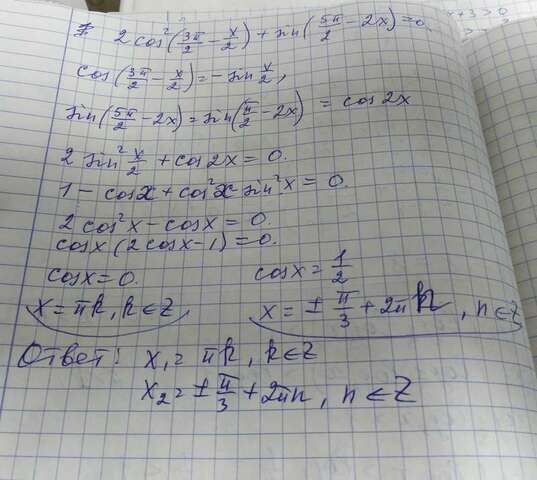 7. 2cos²(3π/2 - x/2) + sin(5π/2 - 2x) = 0.
cos(3π/2 - x/2) = -sin x/2,
sin(5π/2 - 2x) = sin(π/2 - 2x) = cos2x
2 sin² x/2 + cos2x = 0.
1 - cosx + cos²x sin²x = 0.
2cos²x - cosx = 0.
cosx(2cosx - 1) = 0.
cosx = 0. cosx = 1/2
x = πk, k∈Z x = ± π/3 + 2πn, n∈Z
Ответ: x₁ = πk, k∈Z
x₂ = ± π/3 + 2πn, n∈Z